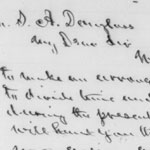 n. S. A. Douglas
My Dear Sir
to make an arran
to divide time and
during the present
will hand you th